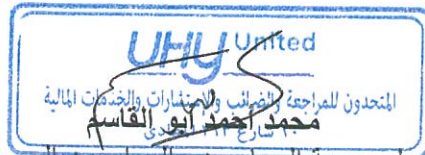 UHY United
المتحدون للمراجعة والضرائب والإستشارات والخدمات المالية
محمد أحمد أبو القاسم
شارع